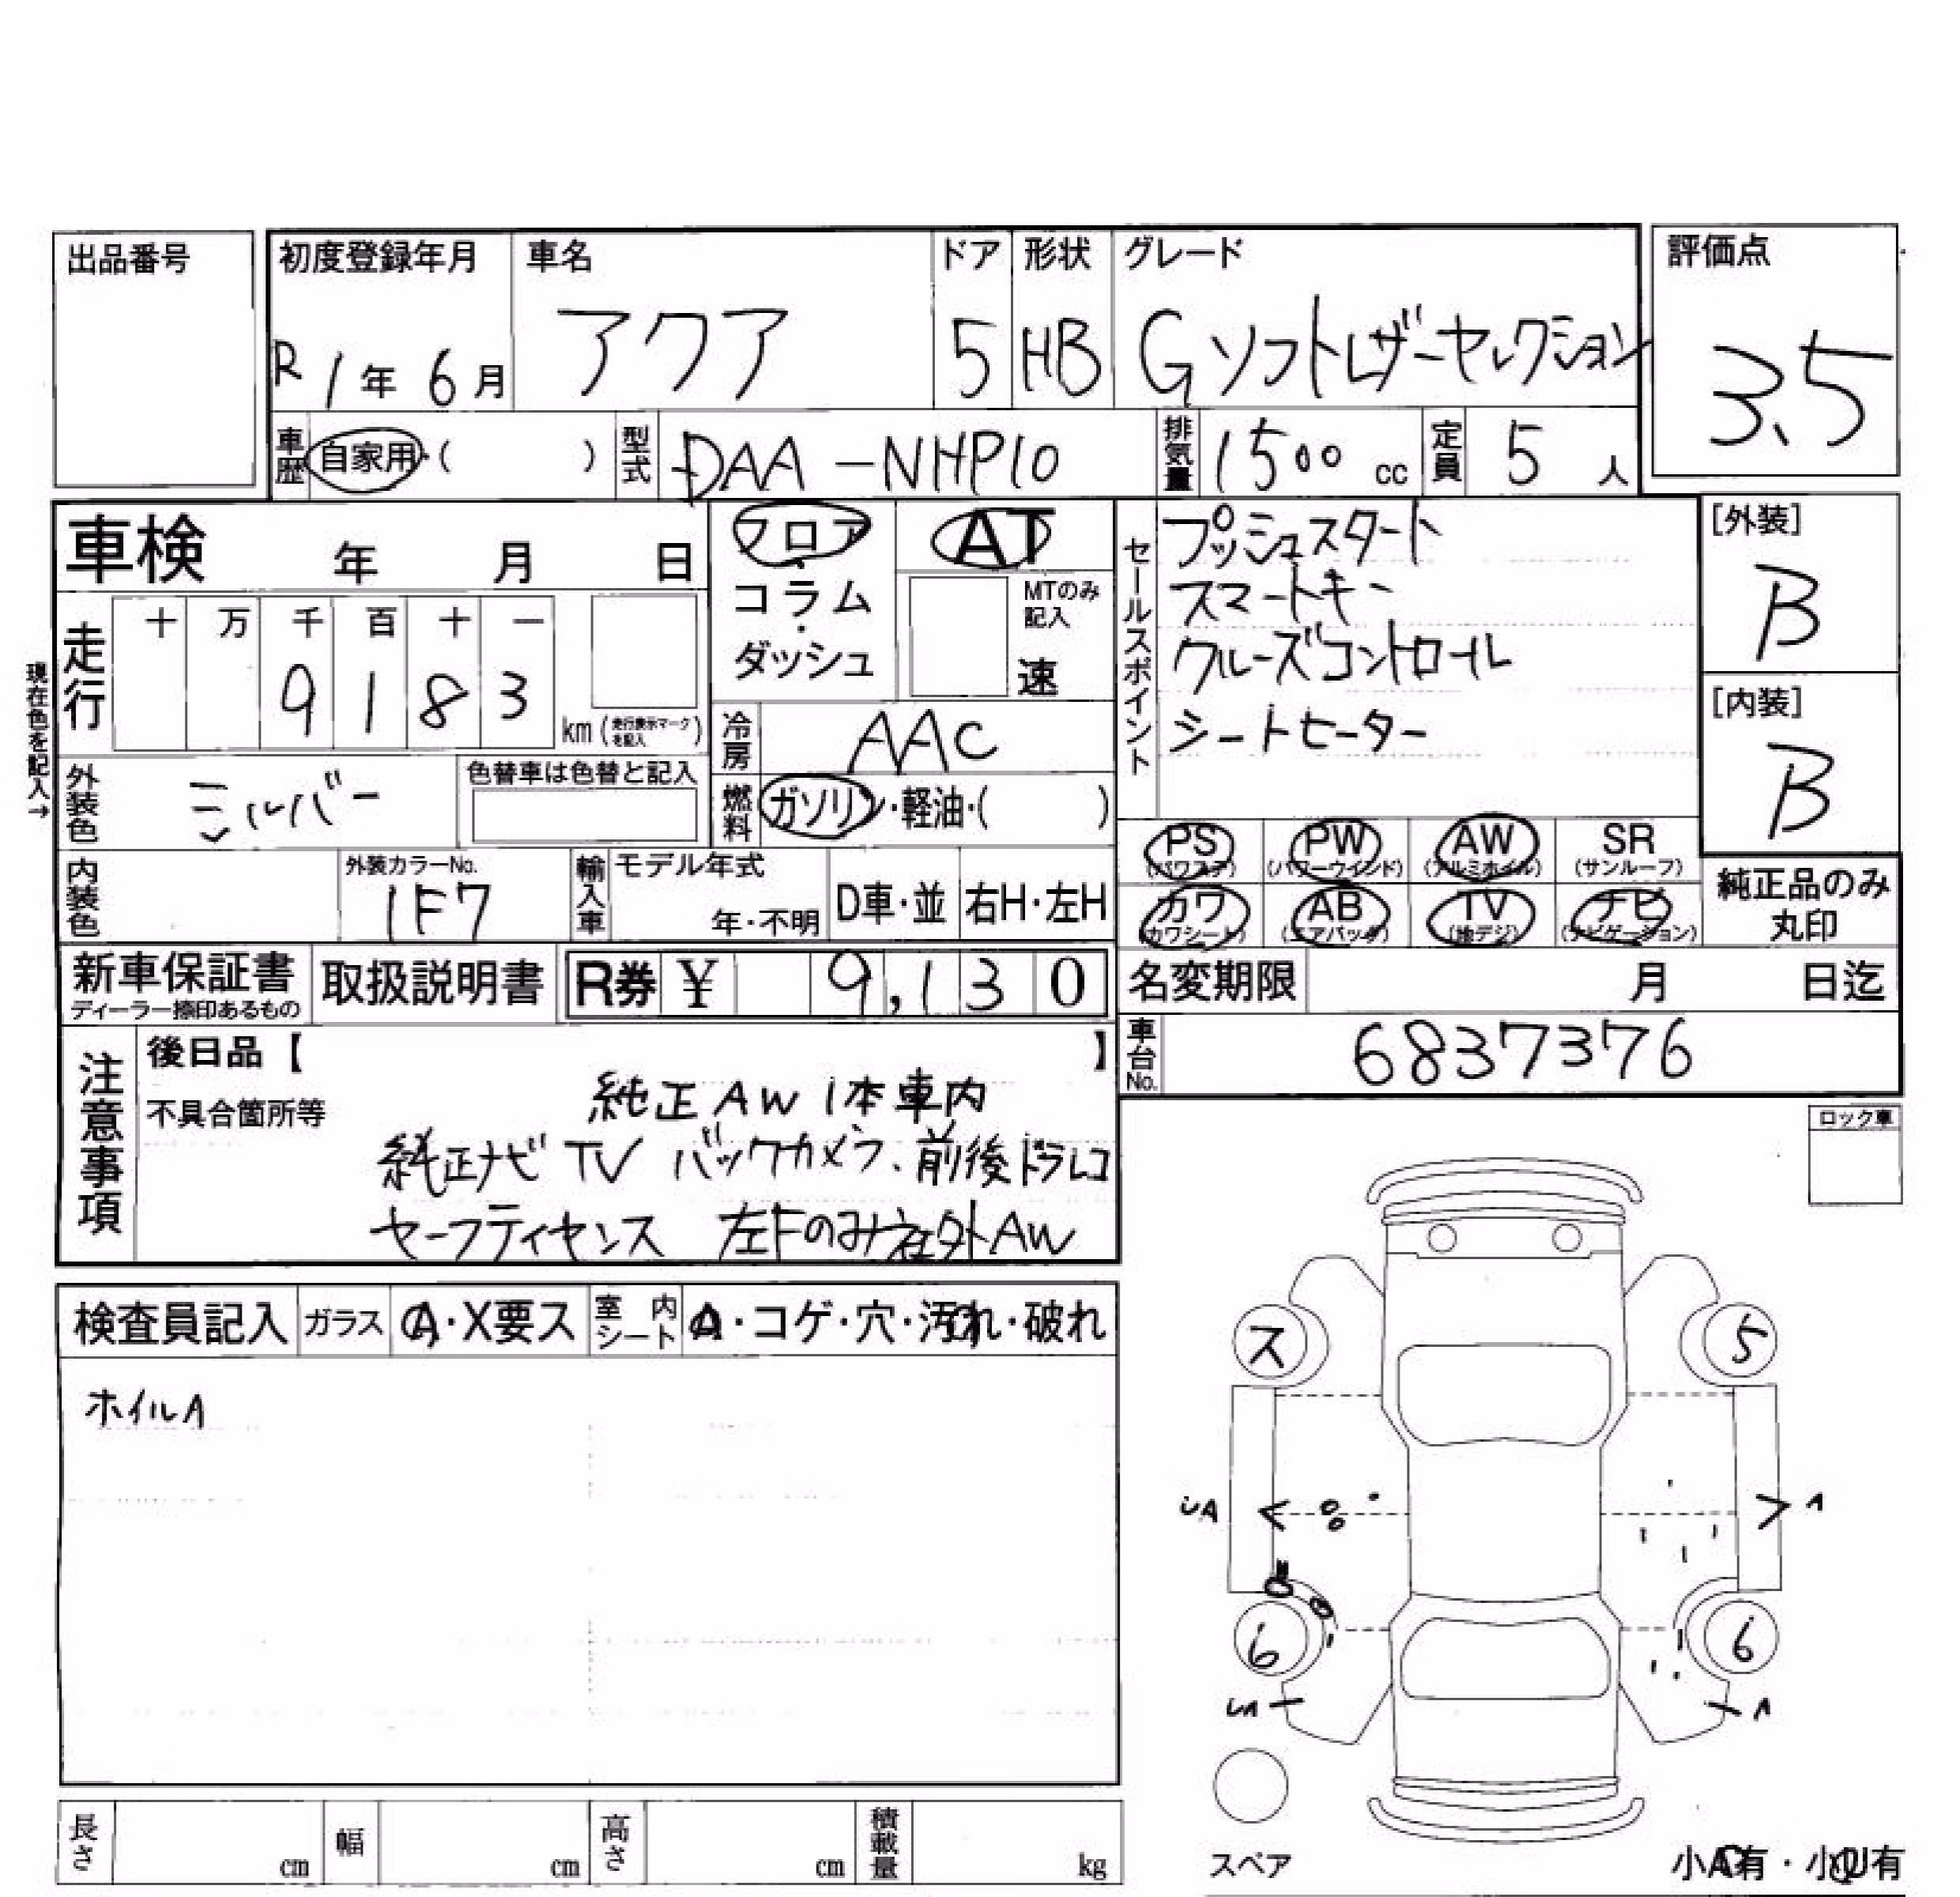 出品番号
初度登録年月 車名 ドア 形状 グレード 評価点
R1年6月 アクア 5 HB Gソフトレザーセレクション 3.5
車歴 自家用・( ) 型式 DAA-NHP10 排気量 1500 cc 定員 5 人
車検 年 月 日
フロア・コラム・ダッシュ
AT
MTのみ記入
速
セールスポイント
プッシュスタート
スマートキー
クルーズコントロール
シートヒーター
[外装]
B
[内装]
B
現在色を記入→
走行 十 万 千 百 十 一
9183 km (走行表示マークを記入)
冷房 AAC
外装色 シルバー 色替車は色替と記入
燃料 ガソリン・軽油・( )
PS (パワステ) PW (パワーウインド) AW (アルミホイル) SR (サンルーフ)
カワ (カワシート) AB (エアバッグ) TV (地デジ) ナビ (ナビゲーション)
純正品のみ丸印
内装色 外装カラーNo. 1F7 輸入車 モデル年式 年・不明 D車・並 右H・左H
新車保証書 ディーラー捺印あるもの 取扱説明書 R券 ¥ 9,130
名変期限 月 日迄
車台No. 6837376
注意事項
後日品【 】
不具合箇所等
純正AW 1本車内
純正ナビ TV バックカメラ、前後ドラレコ
セーフティセンス 左Fのみ社外AW
ロック車
検査員記入 ガラス A・X要ス 室内シート A・コゲ・穴・汚れ・破れ
ホイルA
ス 5
A
6 6
スペア
長さ cm 幅 cm 高さ cm 積載量 kg
小A有・小U有